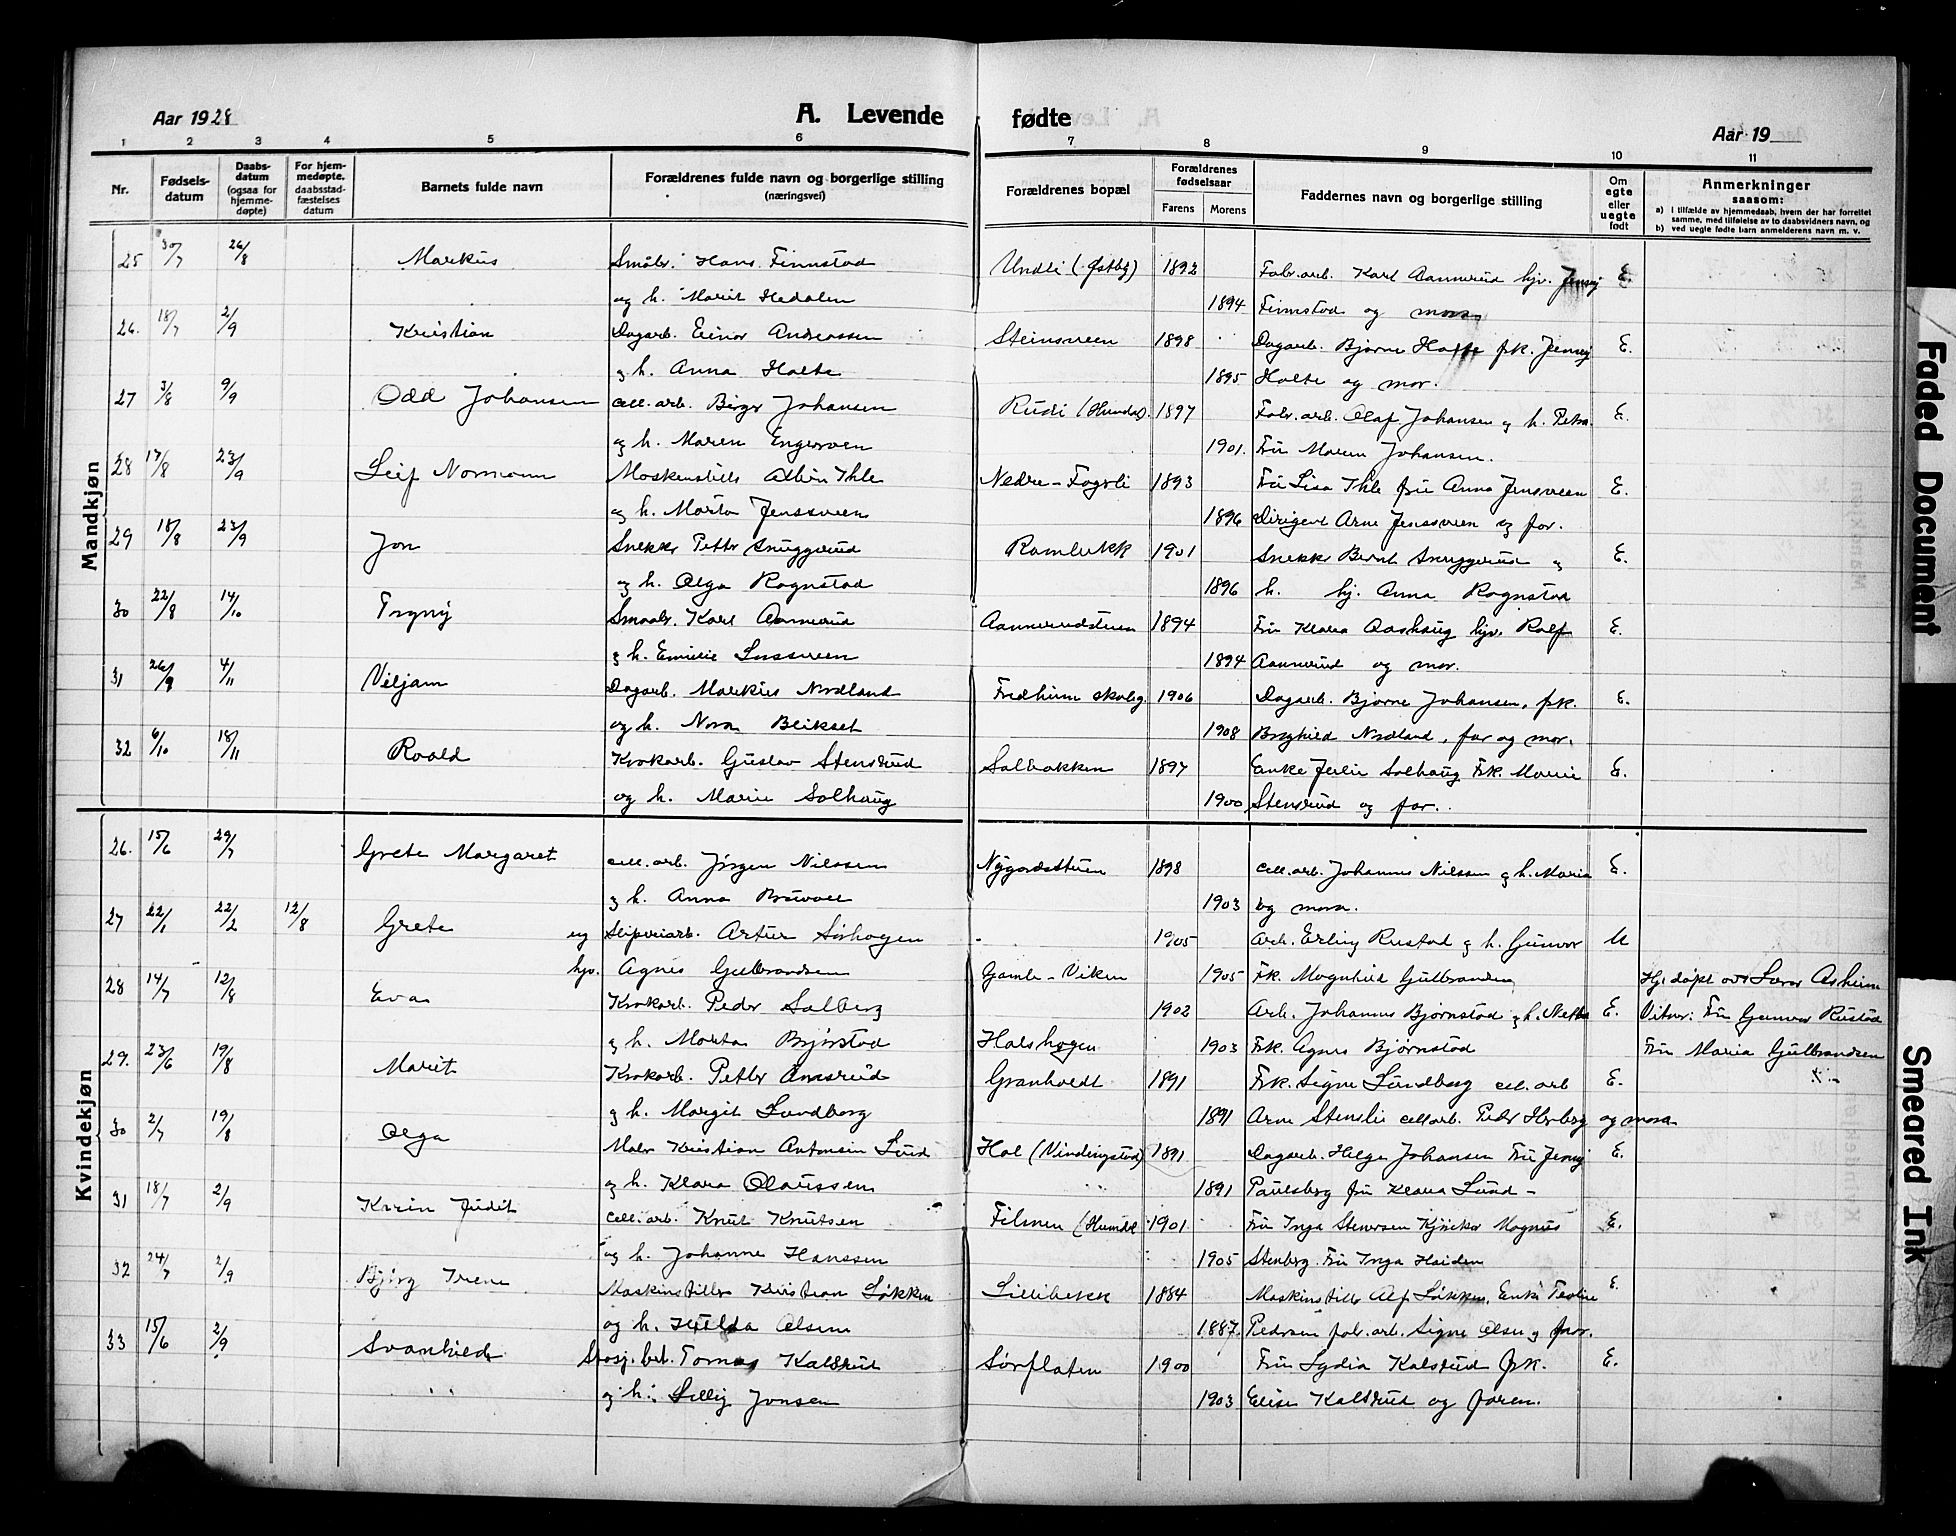 Aar 1928
A. Levende fødte
Aar 19
1 2 3 4 5 6 7 8 9 10 11
Nr.
Fødsels-
datum
Daabs-
datum
(ogsaa for
hjemme-
døpte)
For hjem-
medøpte,
daabsstad-
fæstelses
datum
Barnets fulde navn
Forældrenes fulde navn og borgerlige stilling
(næringsvei)
Forældrenes bopæl
Forældrenes
fødselsaar
Farens Morens
Faddernes navn og borgerlige stilling
Om
egte
eller
uegte
født
Anmerkninger
saasom:
a) i tilfælde av hjemmedaab, hvem der har forrettet
samme, med tilføielse av to daabsvidners navn, og
b) ved uegte fødte barn anmelderens navn m. v.
Mandkjøn
25 30/7 26/8 Markus Småbr. Hans Finnstad Undli (Østby) 1892 Fabr.arb. Karl Aannerud hjv. Jenny E.
og h. Marit Hedalen 1894 Finnstad og mora
26. 18/7 2/9 Kristian Dagarb. Einar Andreassen Steinsveen 1898 Dagarb. Bjarne Holte frk. Jenny E.
og h. Anna Holte 1895 Holte og mor.
27 3/8 9/9 Odd Johansen Cell.arb. Birger Johansen Rudi (Hundal). 1897 Fabr.arb. Olaf Johansen og h. Petra E.
og h. Maren Engesveen 1901. Fru Maren Johansen.
28 17/8 23/9 Leif Normann Maskenstills Albin Ihle Nedre-Fagerli 1893 Fru Lisa Ihle fru Anna Jensveen E.
og h. Marta Jenssveen 1896 Dirigent Arne Jenssveen og far.
29 18/8 23/9 Jon Snekker Petter Snuggerud Rambekk 1901 Snekker Bernt Snuggerud og E.
og h. Olga Rognstad 1896 h. hj. Anna Rognstad
30 22/8 14/10 Trygny Smaabr. Karl Aannerud Aannerudstuen 1894 Fru Klara Aashaug hjv. Ralf E.
og h. Emilie Enssveen 1894 Aannerud og mor.
31 26/9 4/11 Viljam Dagarb. Markus Nordland Fredheim skoleg. 1906 Dagarb. Bjarne Johansen, frk. E.
og h. Nora Bleikset 1908 Borghild Nordland, far og mor.
32 6/10 18/11 Roald Krokarb. Gustav Stensrud Solbakken 1897 Enke Julie Solhaug Frk. Marie E.
og h. Marie Solhaug 1900 Stensrud og far.
Kvindekjøn
26. 15/6 29/7 Grete Margaret Cell.arb. Jørgen Nilssen Nygardsstuen 1898 Cell.arb. Johannes Nilssen og h. Maria E.
og h. Anna Bruvoll 1903 og mora.
27 22/1 22/2 12/8 Grete ug Sliperiarb. Artur Sørhagen 1905 Arb. Erling Rustad og h. Gunvor U
hjv. Agnes Gulbrandsen Gamle-Viken 1905 Frk. Magnhild Gulbrandsen Hj. døpt av Sver Asheim
28 14/7 12/8 Eva Krokarb. Peder Solberg 1902 Arb. Johannes Bjørnstad og h. Netta E. Vitner: Fru Gunvor Rustad
og h. Marta Bjørstad Halshagen 1903 Frk. Agnes Bjørnstad Fru Maria Gulbrandsen
29. 23/6 19/8 Marit Krokarb. Petter Amsrud Granholdt 1891 Frk. Signe Lundberg cell.arb E.
og h. Margit Lundberg 1891 Arne Stenslie cellarb. Peder Hoberg og mora
30 2/7 19/8 Olga Maler Kristian Antonsen Lund Hol (Vindingstad) 1891 Dagarb. Helge Johansen Fru Jenny E.
og h. Klara Olaussen 1891 Paulsberg fru Klara Lund -
31 18/7 2/9 Karin Judit Cell.arb. Knut Knutsen Filmen (Hundl. 1901 Fru Inga Stenersen Kjørekar Magnus E.
og h. Johanne Hanssen 1905 Stenberg. Fru Inga Haiden
32 24/7 2/9 Bjørg Irene Maskinstiller Kristian Løkken Lillebekk 1884 Maskinstiller Alf Løkken, Enke Teoline E.
og h. Hulda Olsen 1887. Pedersen fabr.arb. Signe Olsen og far.
33 15/6 2/9 Svanhild Stasj.bet. Tomas Kalstrud Sørflaten 1900 Fru Lydia Kalstrud frk. E.
og h. Lilly Jonsen 1903 Elise Kalstrud og faren.
Faded Document
Smeared Ink